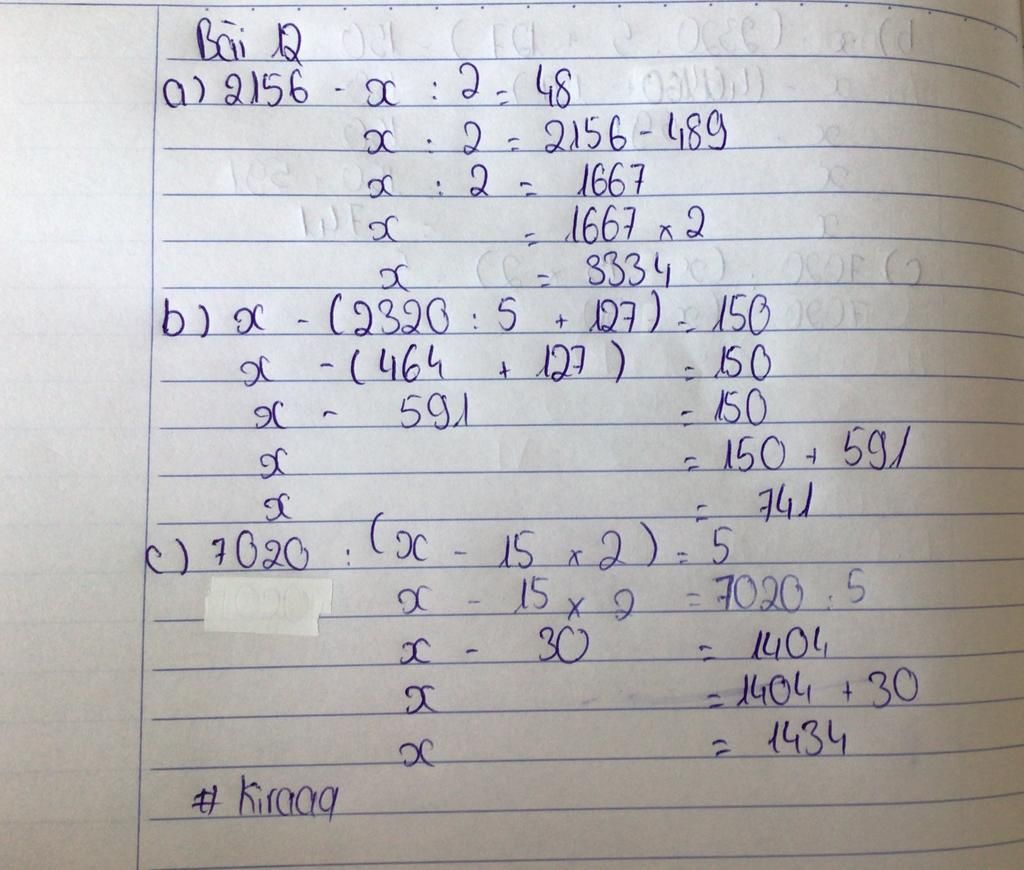 Bài 12
a) 2156 - x : 2 = 48
x : 2 = 2156 - 489
x : 2 = 1667
x = 1667 x 2
x = 3334
b) x - (2320 : 5 + 127) = 150
x - (464 + 127) = 150
x - 591 = 150
x = 150 + 591
x = 741
c) 7020 : (x - 15 x 2) = 5
x - 15 x 2 = 7020 : 5
x - 30 = 1404
x = 1404 + 30
x = 1434
# Kiraaq